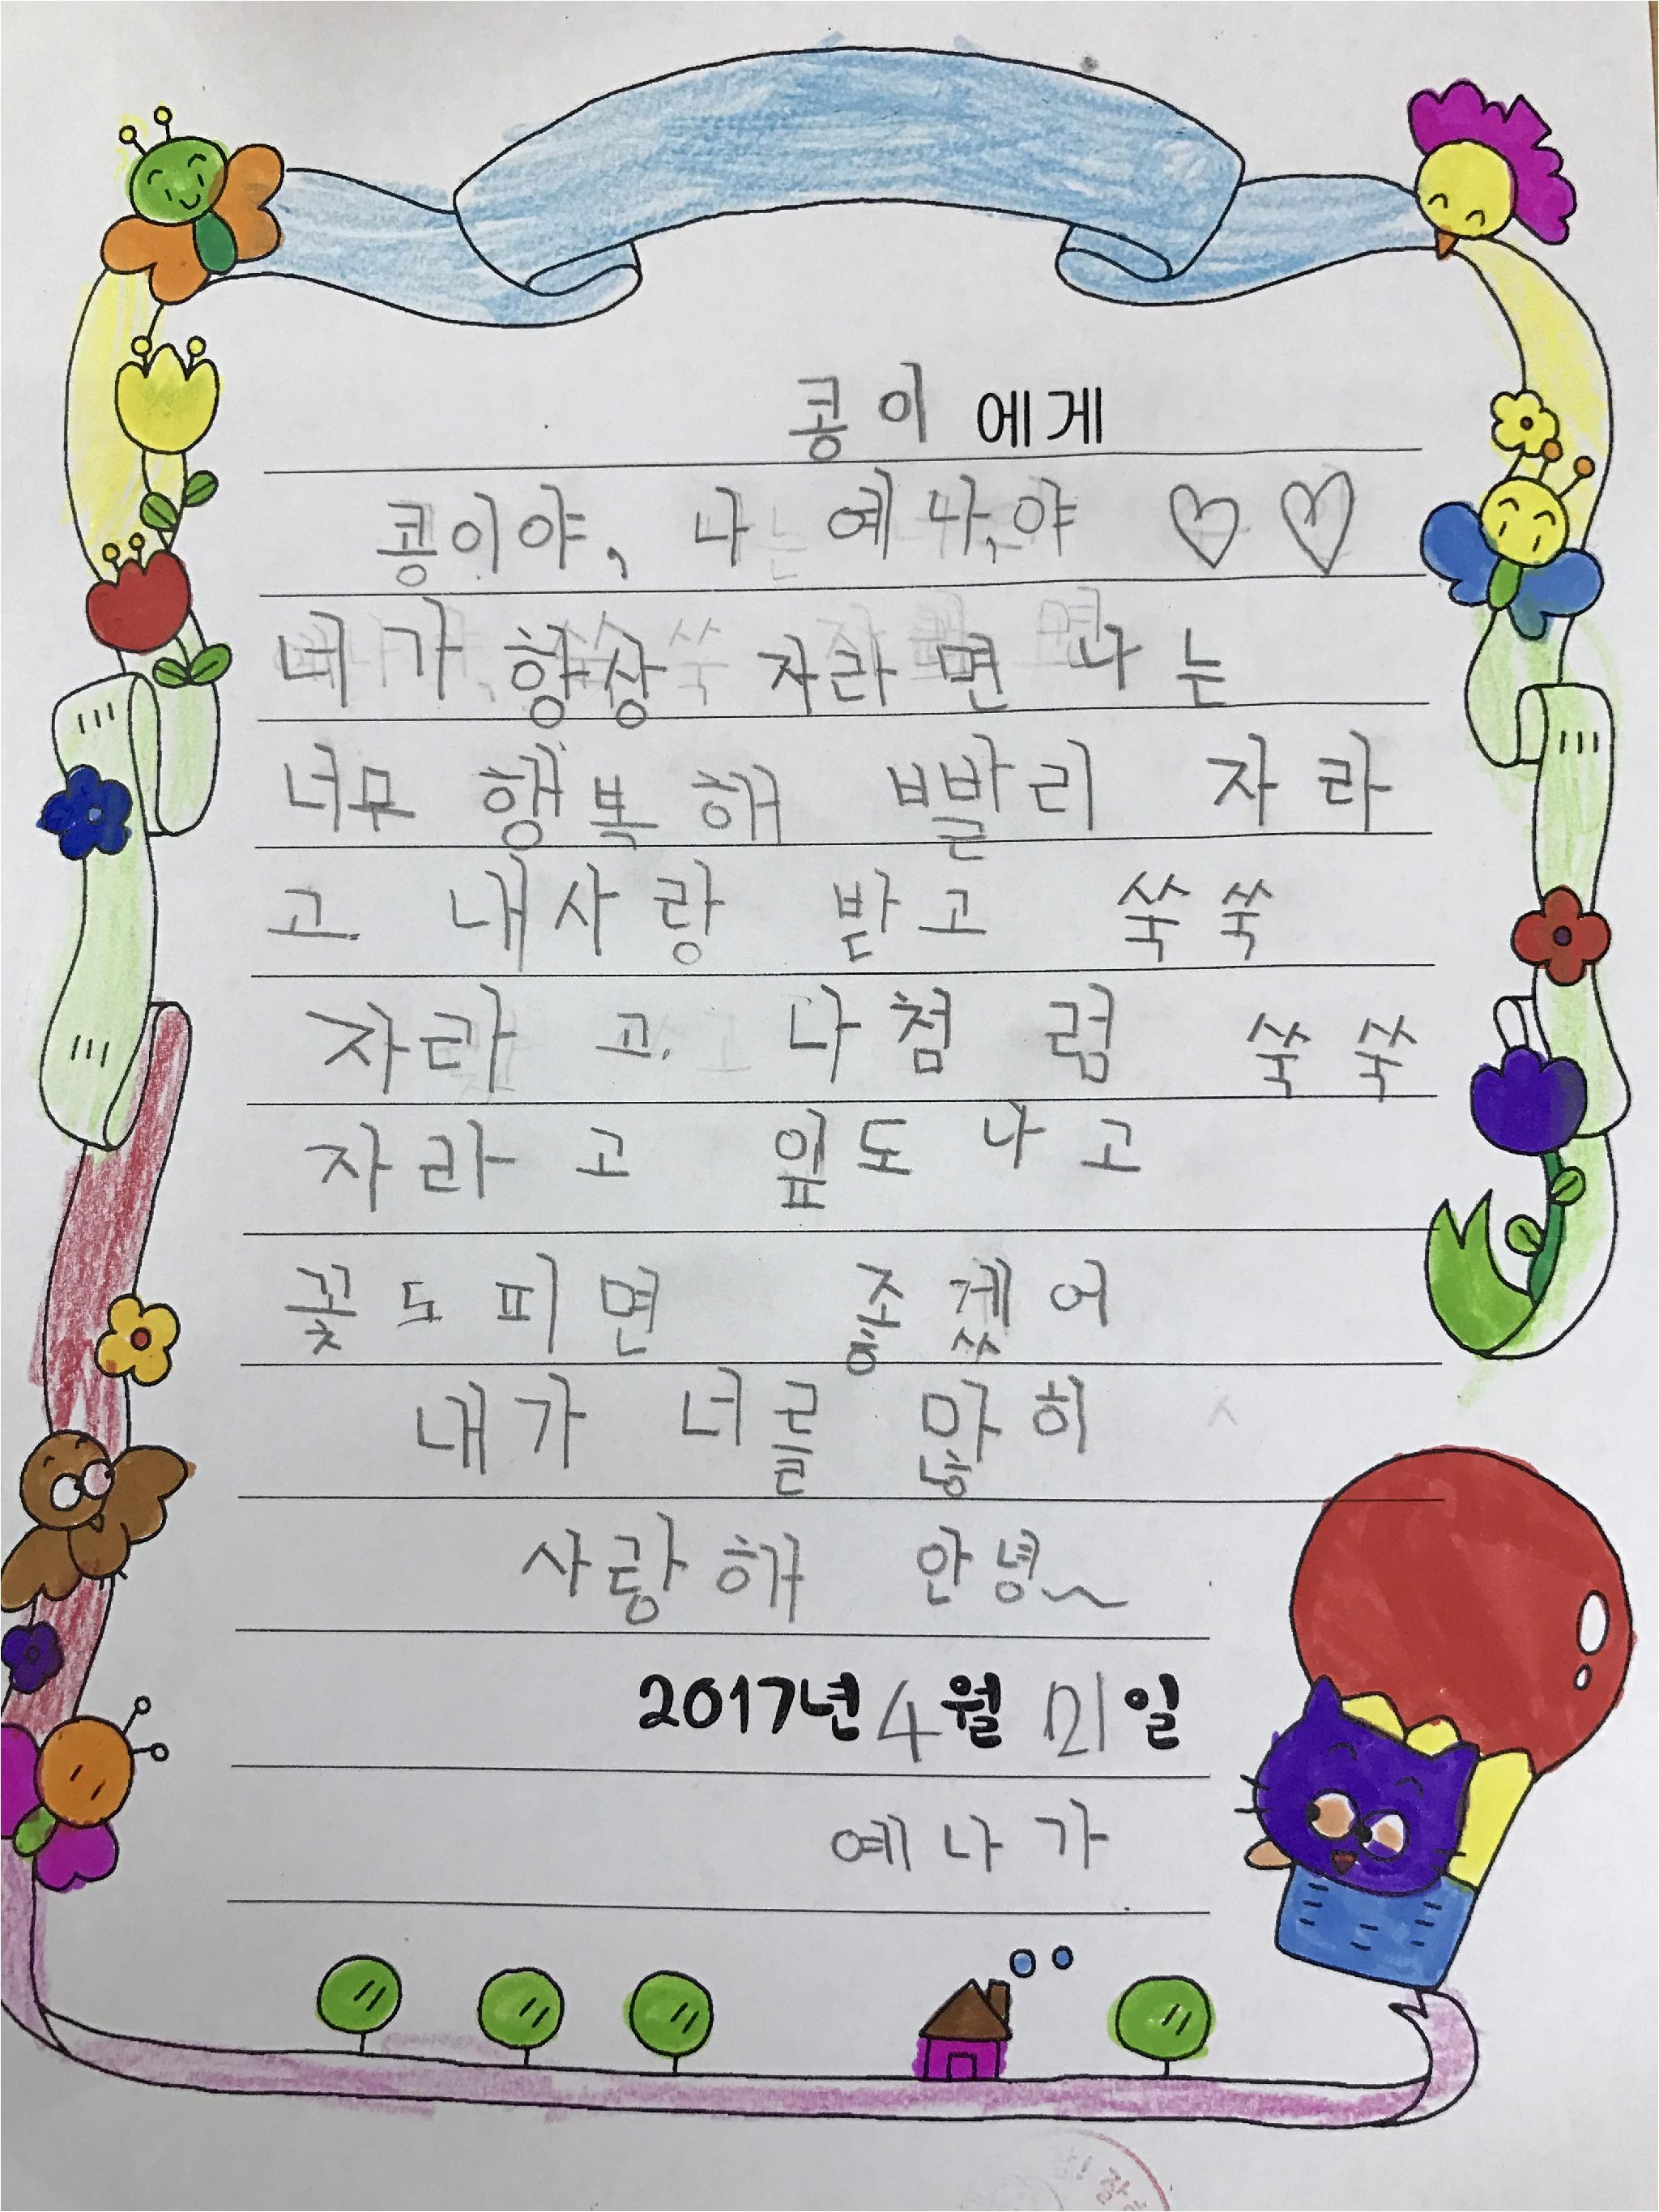 콩이에게
콩이야, 나 예나야 ♡♡
너가 항상 자라면 나는
너무 행복해 빨리 자라
고 내사랑 받고 쑥쑥
자라고 나첨럼 쑥쑥
자라고 잎도 나고
꽃도피면 좋겠어
내가 너를 많히
사랑해 안녕~
2017년 4월 21일
예나가